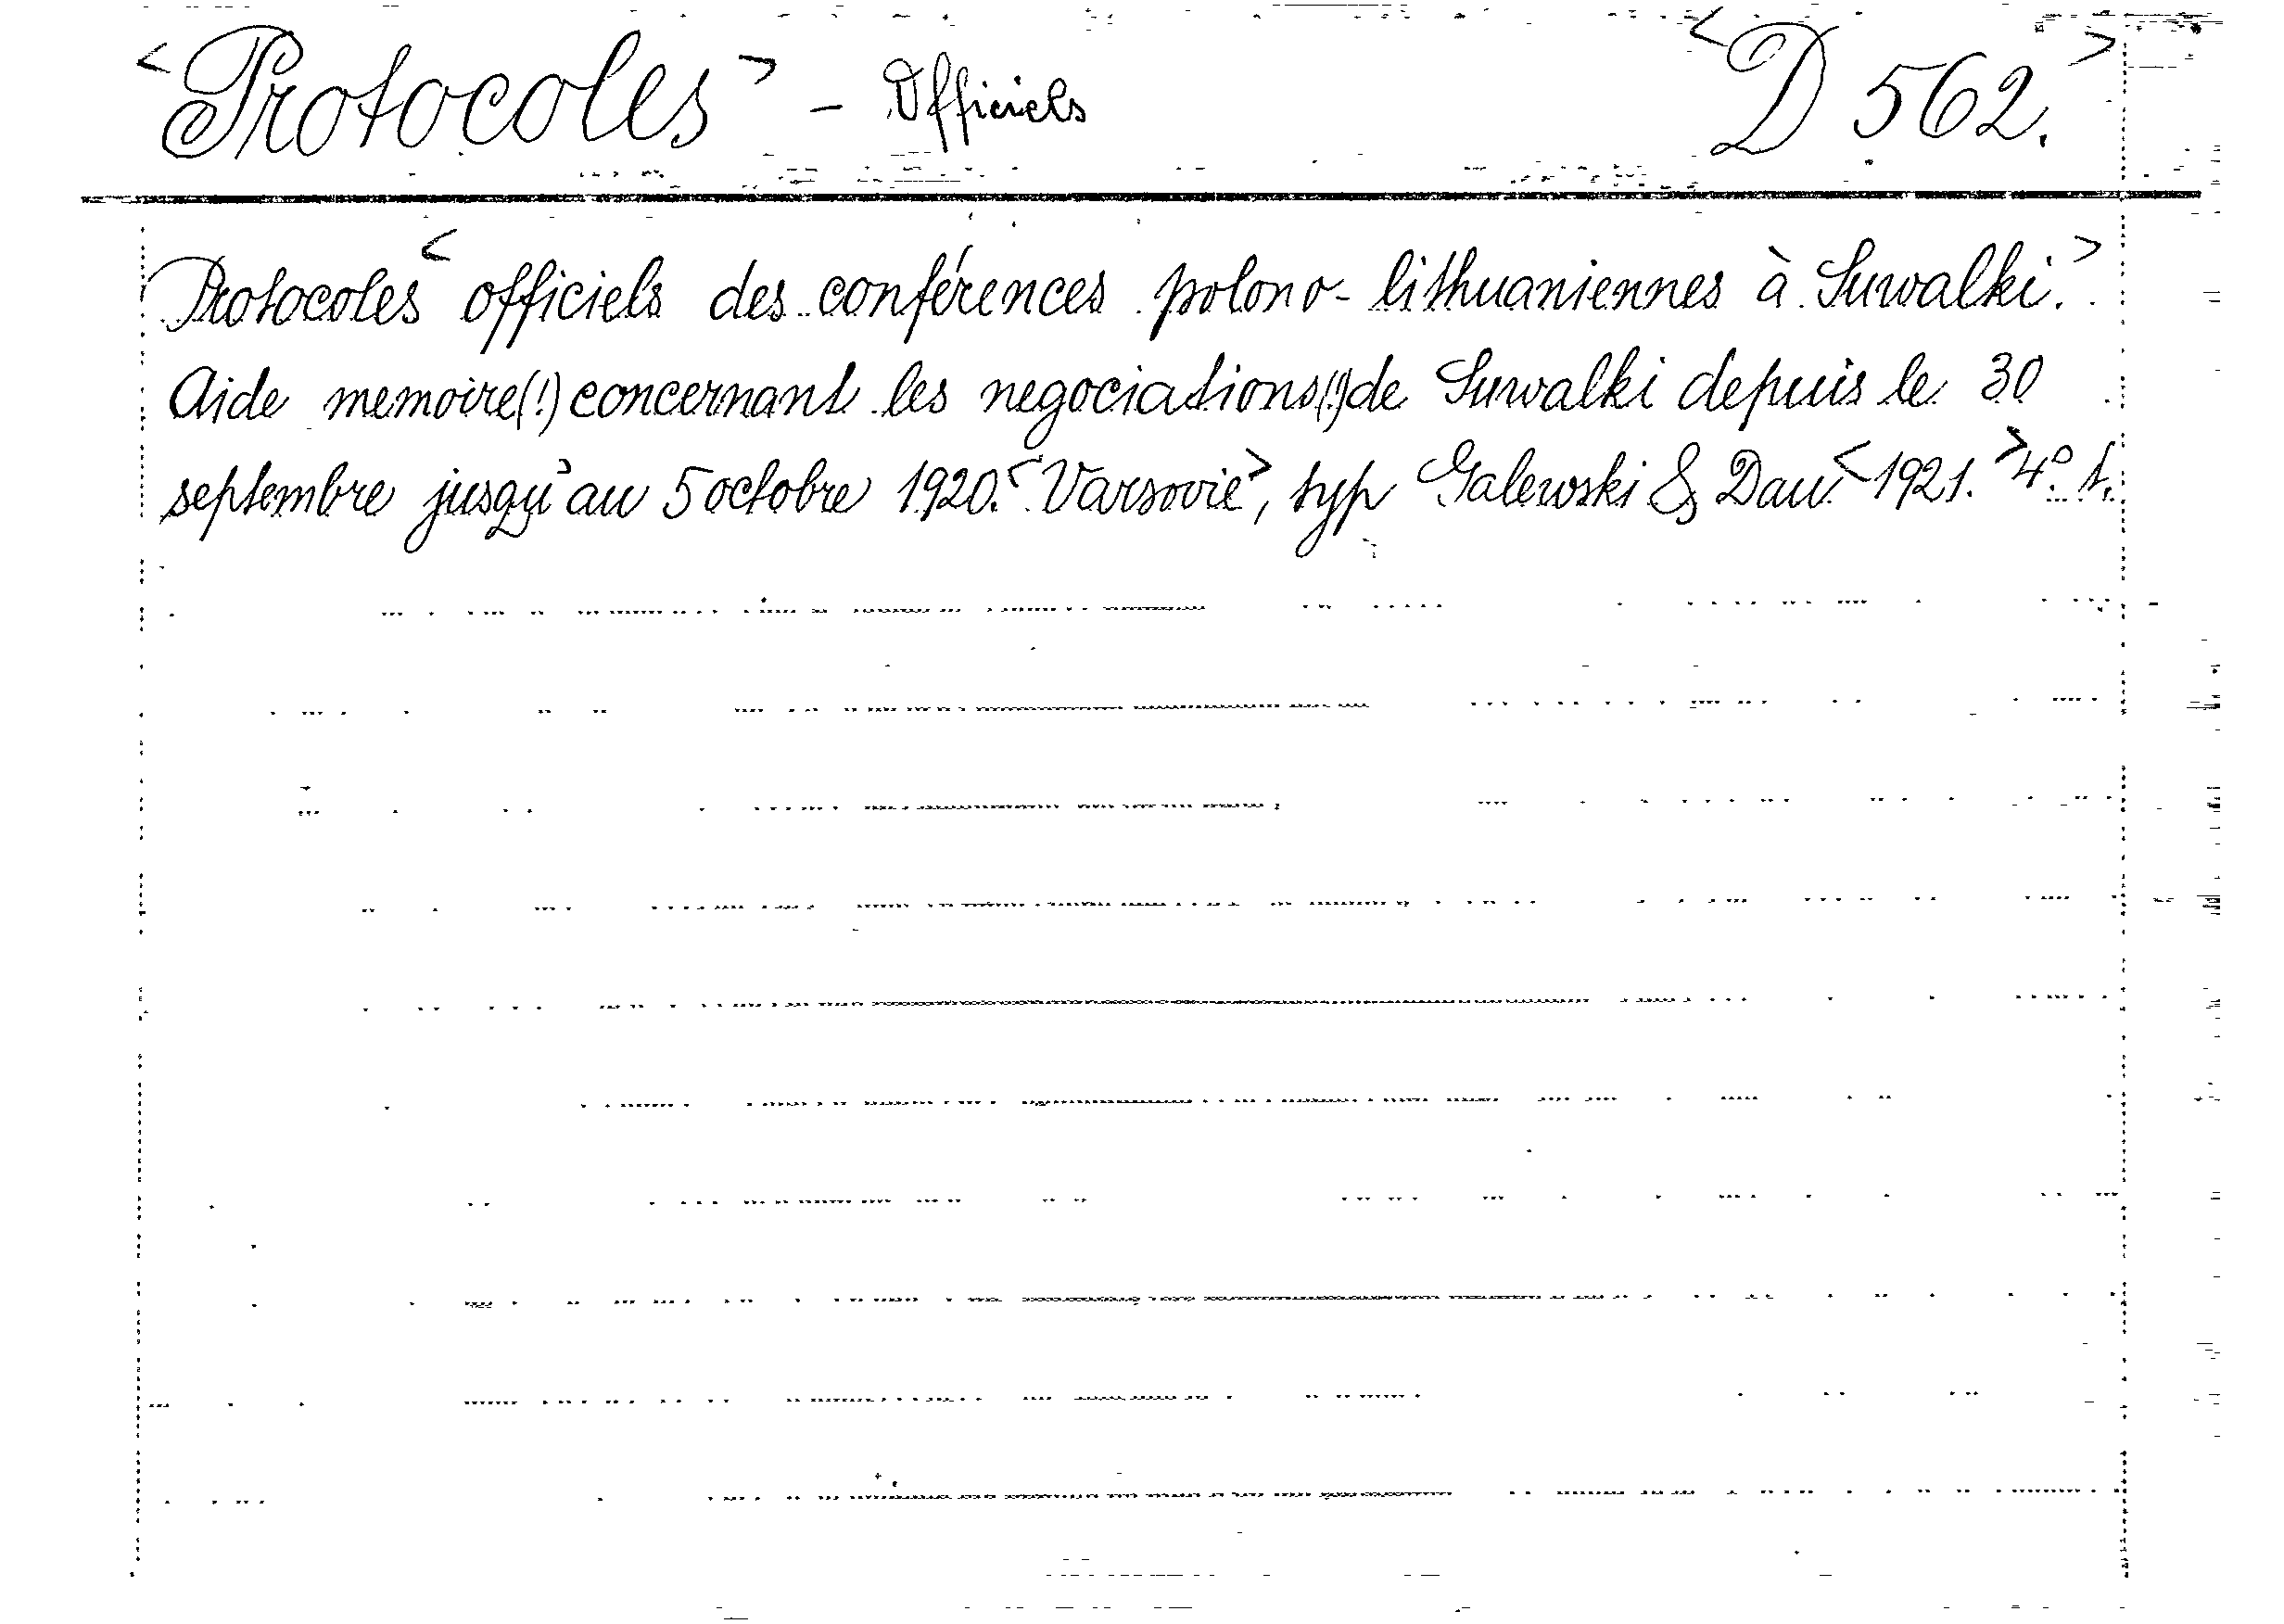 <Protocoles> - Officiels <D 562.>
Protocoles < officiels des conférences polono-lithuaniennes à Suwalki.>
Aide memoire(!) concernant les negociations(!) de Suwalki depuis le 30
septembre jusqu'au 5 octobre 1920. <Varsovie>, typ Galewski & Dau. <1921.> 4.º